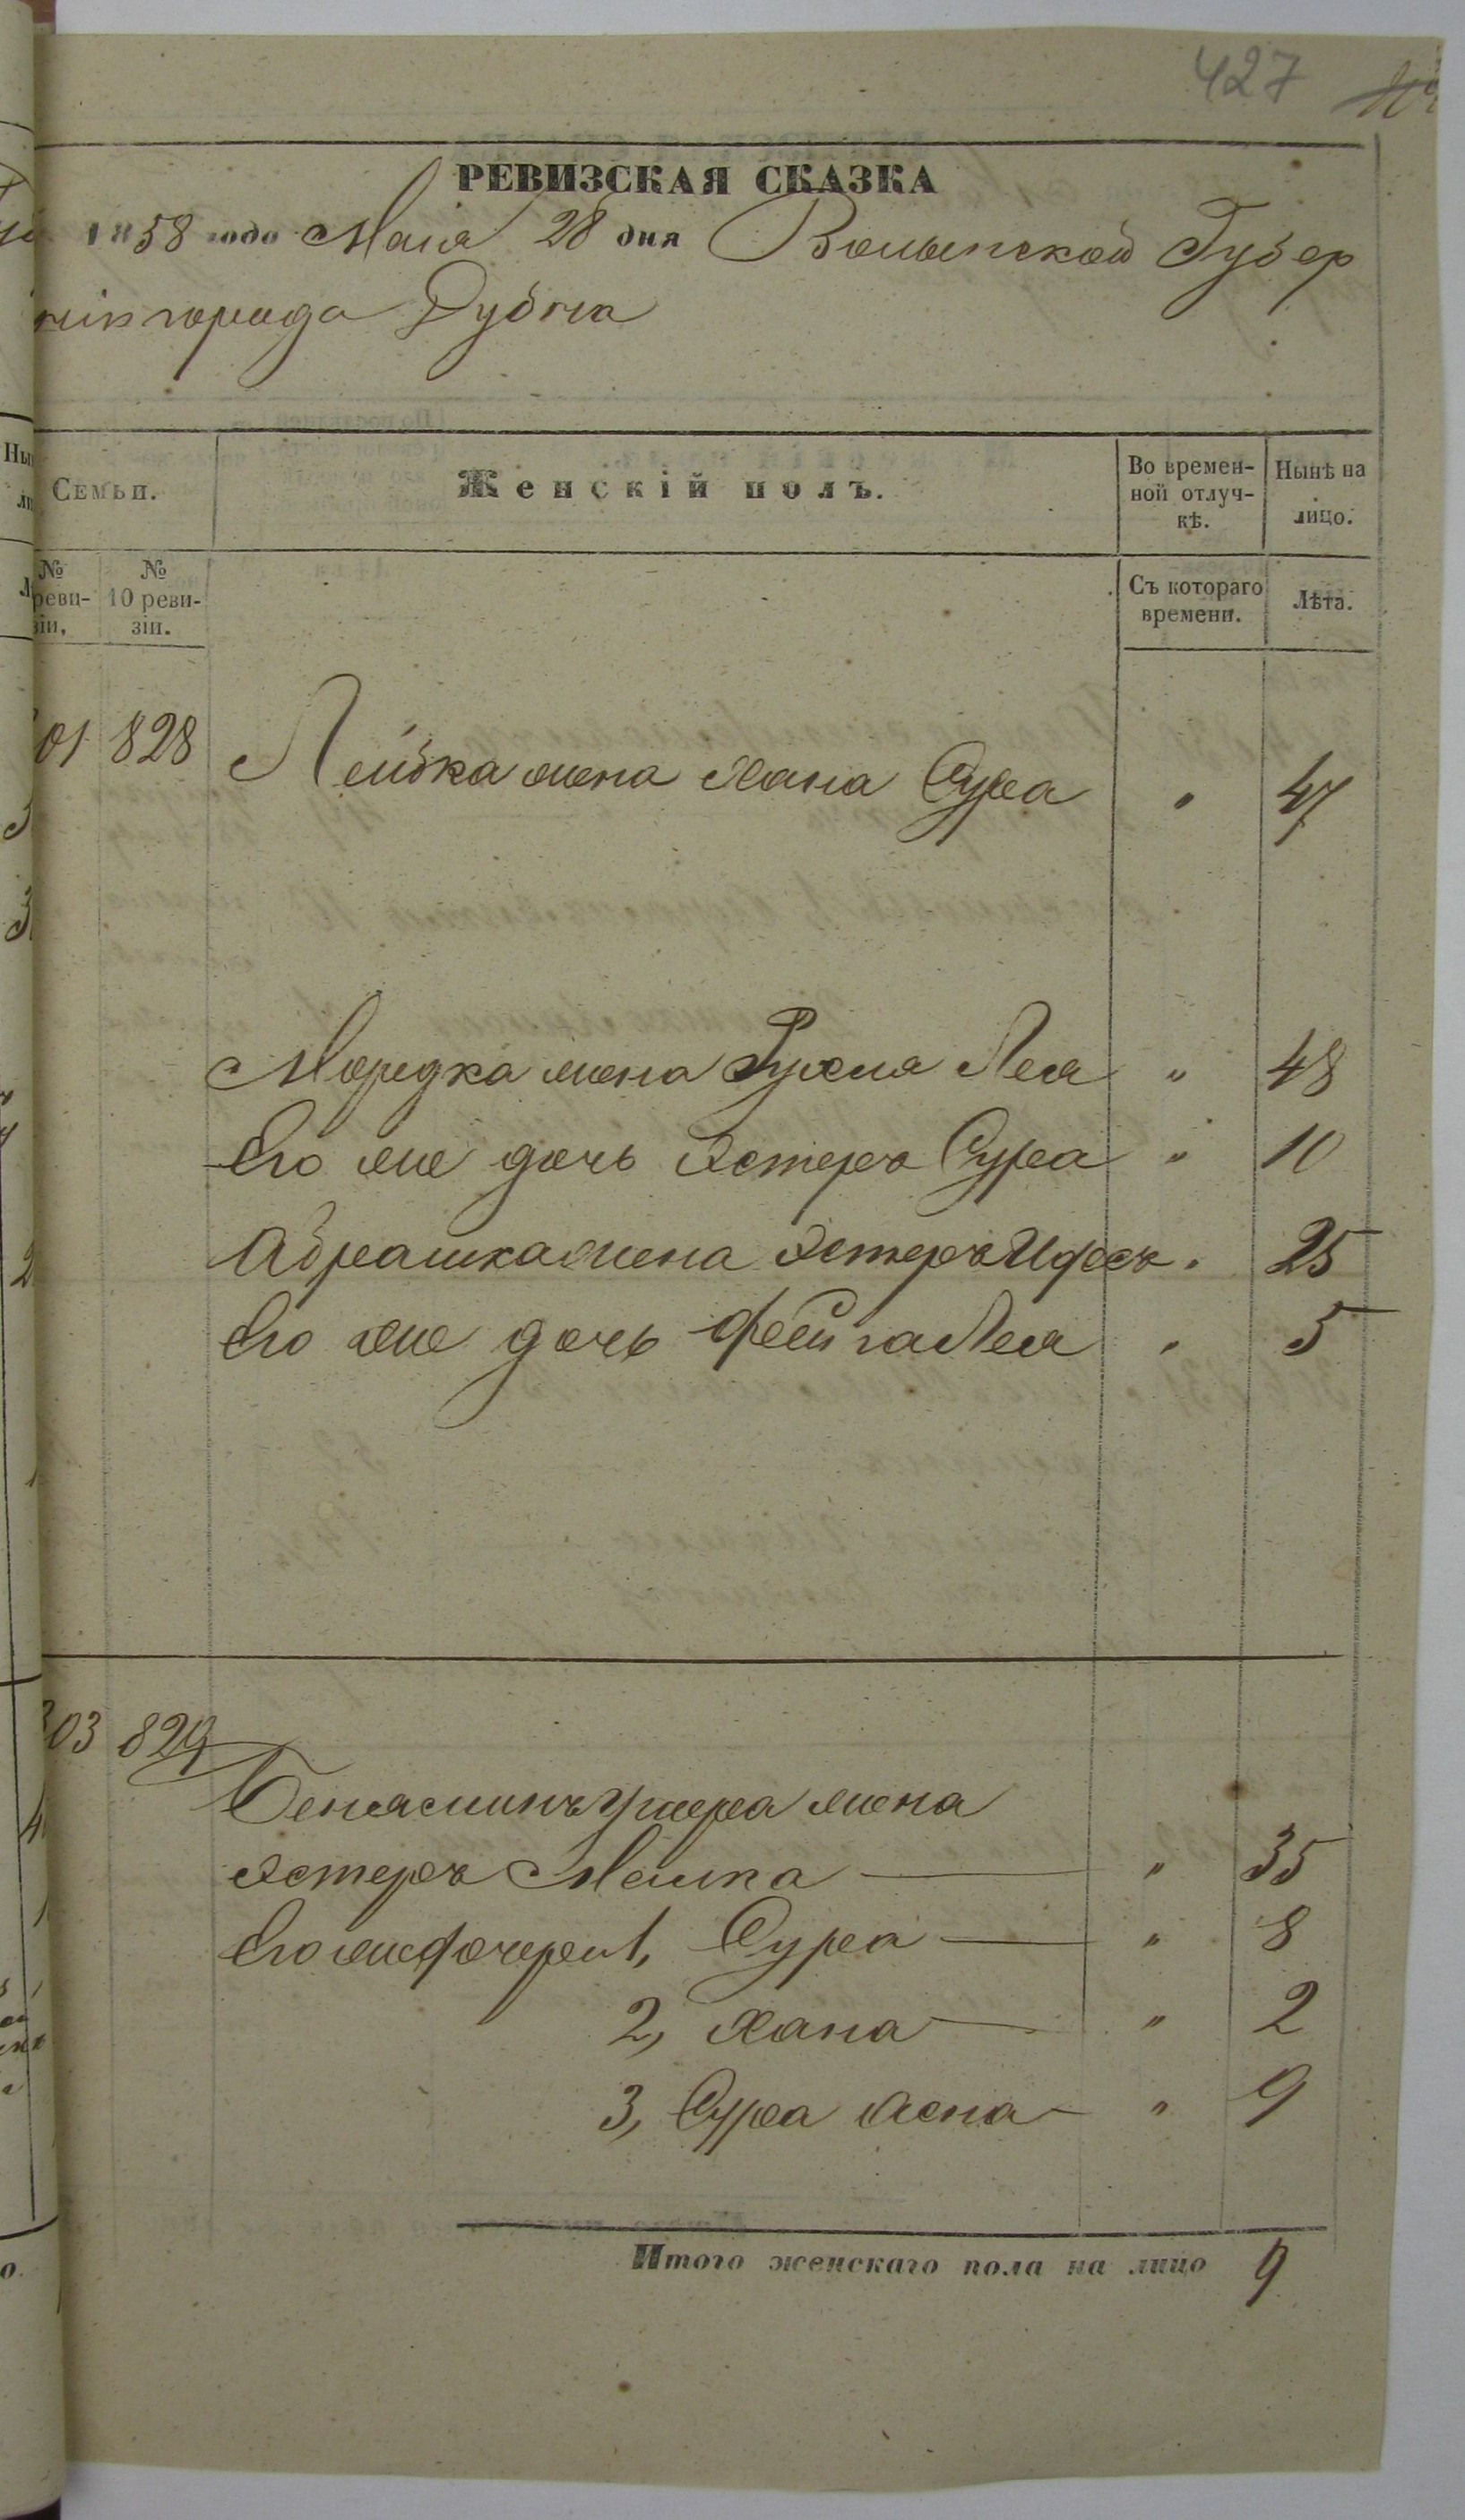 427
РЕВИЗСКАЯ СКАЗКА
1858 года Маія 28 дня Волынской Губер
ніи города Дубна
Семьи.
Женскій полъ.
Во времен-
ной отлуч-
кѣ.
Нынѣ на
лицо.
№
реви-
зіи,
№
10 реви-
зіи.
Съ котораго
времени.
Лѣта.
01 828 Лейбка жена Хана Сура " 47
Мордка жена Рухля Лея " 48
Его же дочь Эстеръ Сура " 10
Абрашка жена Эстеръ " 25
Его же дочь Фейга Лея " 5
303 829
Бенеаминъ жена
Эстеръ Малка — " 35
Его же дочери 1, Сура — " 8
2, Хана — " 2
3, Сура Асна — " 9
Итого женскаго пола на лицо 9